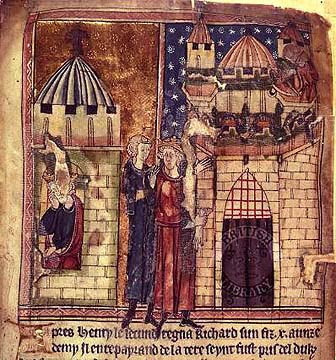 BRITISH
LIBRARY
pres Henry le secund regna Richard sun fiz .x. aunz e
demy si en repayrand de la tere seynt fust pris del duk